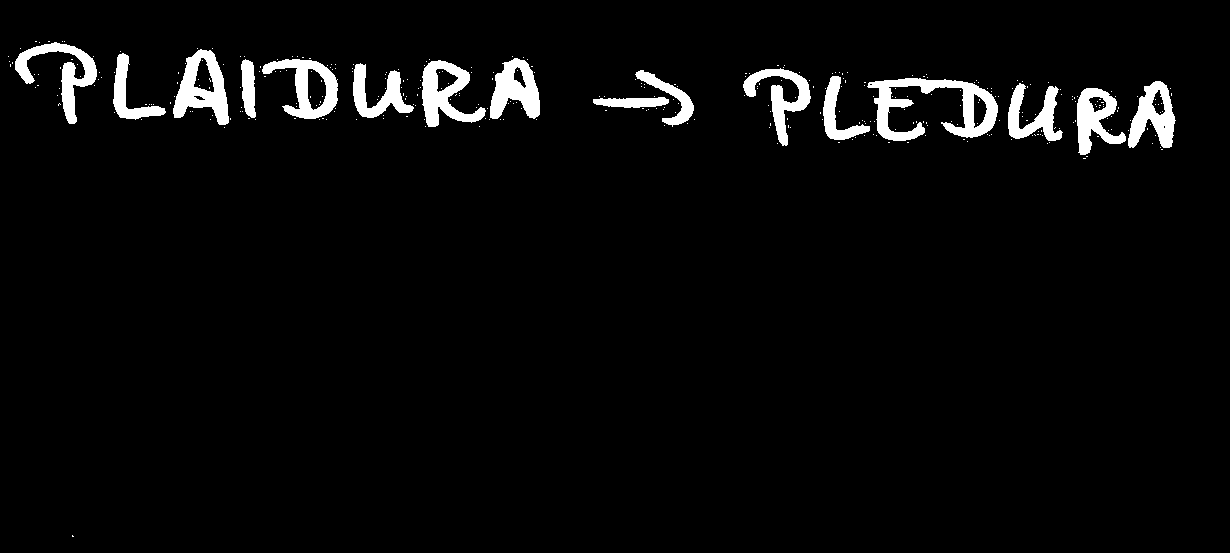 PLAIDURA → PLEDURA